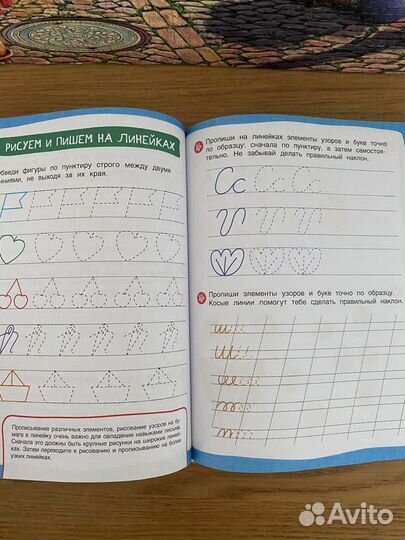 РИСУЕМ И ПИШЕМ НА ЛИНЕЙКАХ
бведи фигуры по пунктиру строго между двумя
иниями, не выходя за их края.
Прописывание различных элементов, рисование узоров на бу-
маге в линейку очень важно для овладения навыками письма.
Сначала это должны быть крупные рисунки на широких линей-
ках. Затем переходите к рисованию и прописыванию на более
узких линейках.
Пропиши на линейках элементы узоров и букв точно
по образцу: сначала по пунктиру, а затем самостоя-
тельно. Не забывай делать правильный наклон.
Сс
Пропиши элементы узоров и букв точно по образцу.
Косые линии помогут тебе сделать правильный наклон.
Avito